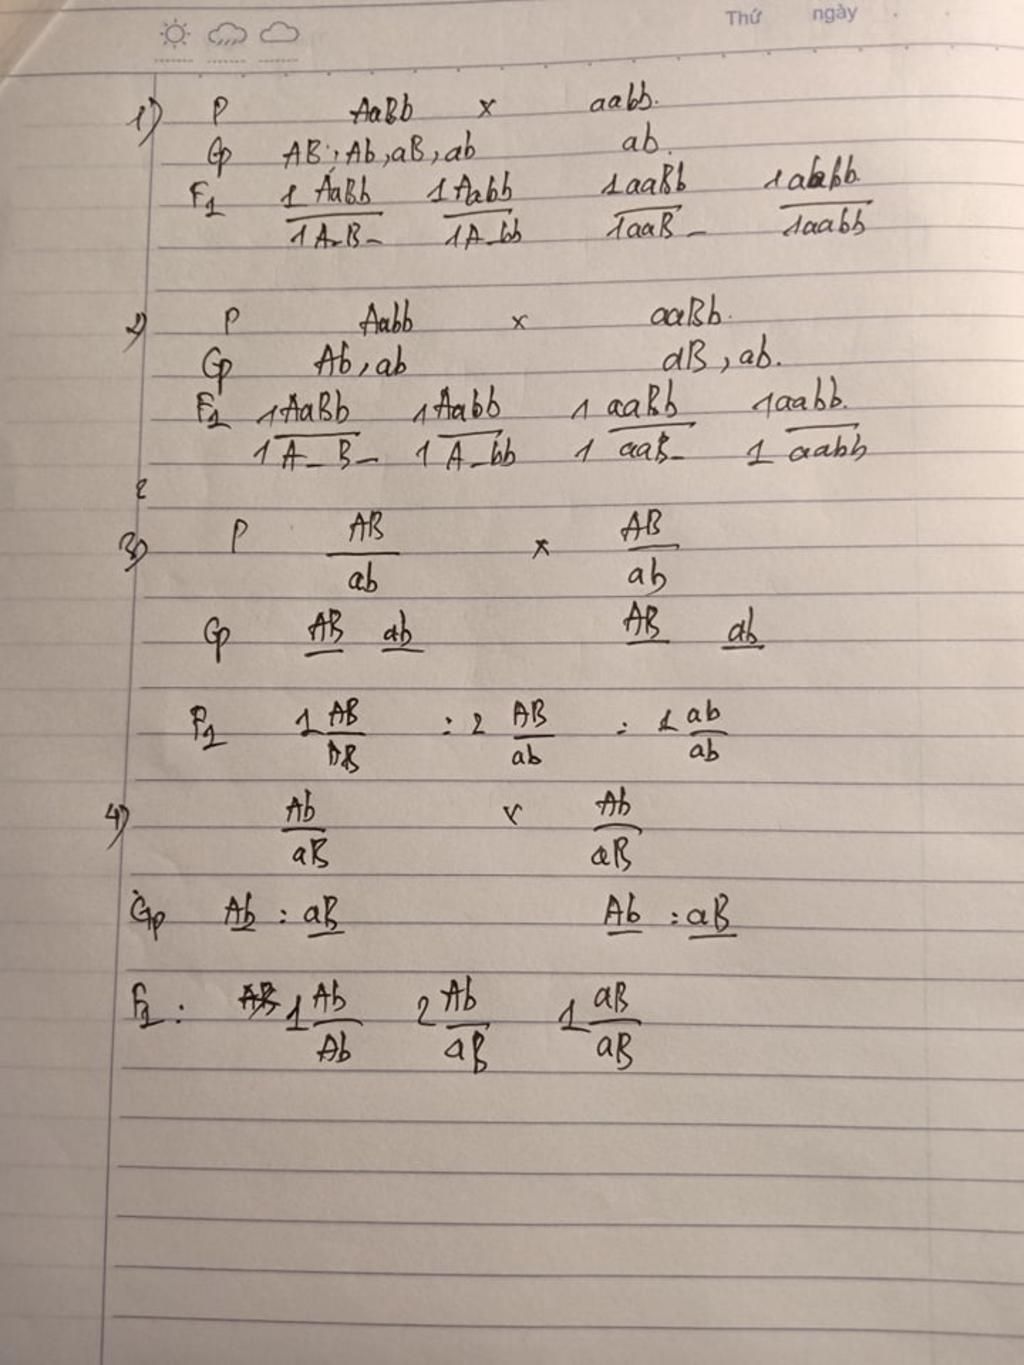 Thứ ngày
1) P AaBb x aabb.
Gp AB, Ab, aB, ab ab.
F1 1 AaBb 1 Aabb 1 aaBb
1 A_B_ 1 A_bb 1 aaB_ 1 aabb
2) P Aabb x aaBb.
Gp Ab, ab aB, ab.
F1 1 AaBb 1 Aabb 1 aaBb 1 aabb.
1 A_B_ 1 A_bb 1 aaB_ 1 aabb
3) P AB x AB
ab ab
Gp AB ab AB ab
F1 1 AB : 2 AB : 1 ab
AB ab ab
4) Ab x Ab
aB aB
Gp Ab : aB Ab : aB
F1 : AB 1 Ab 2 Ab 1 aB
Ab aB aB